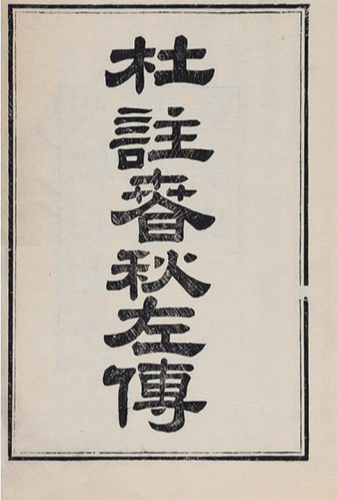 杜註春秋左傳